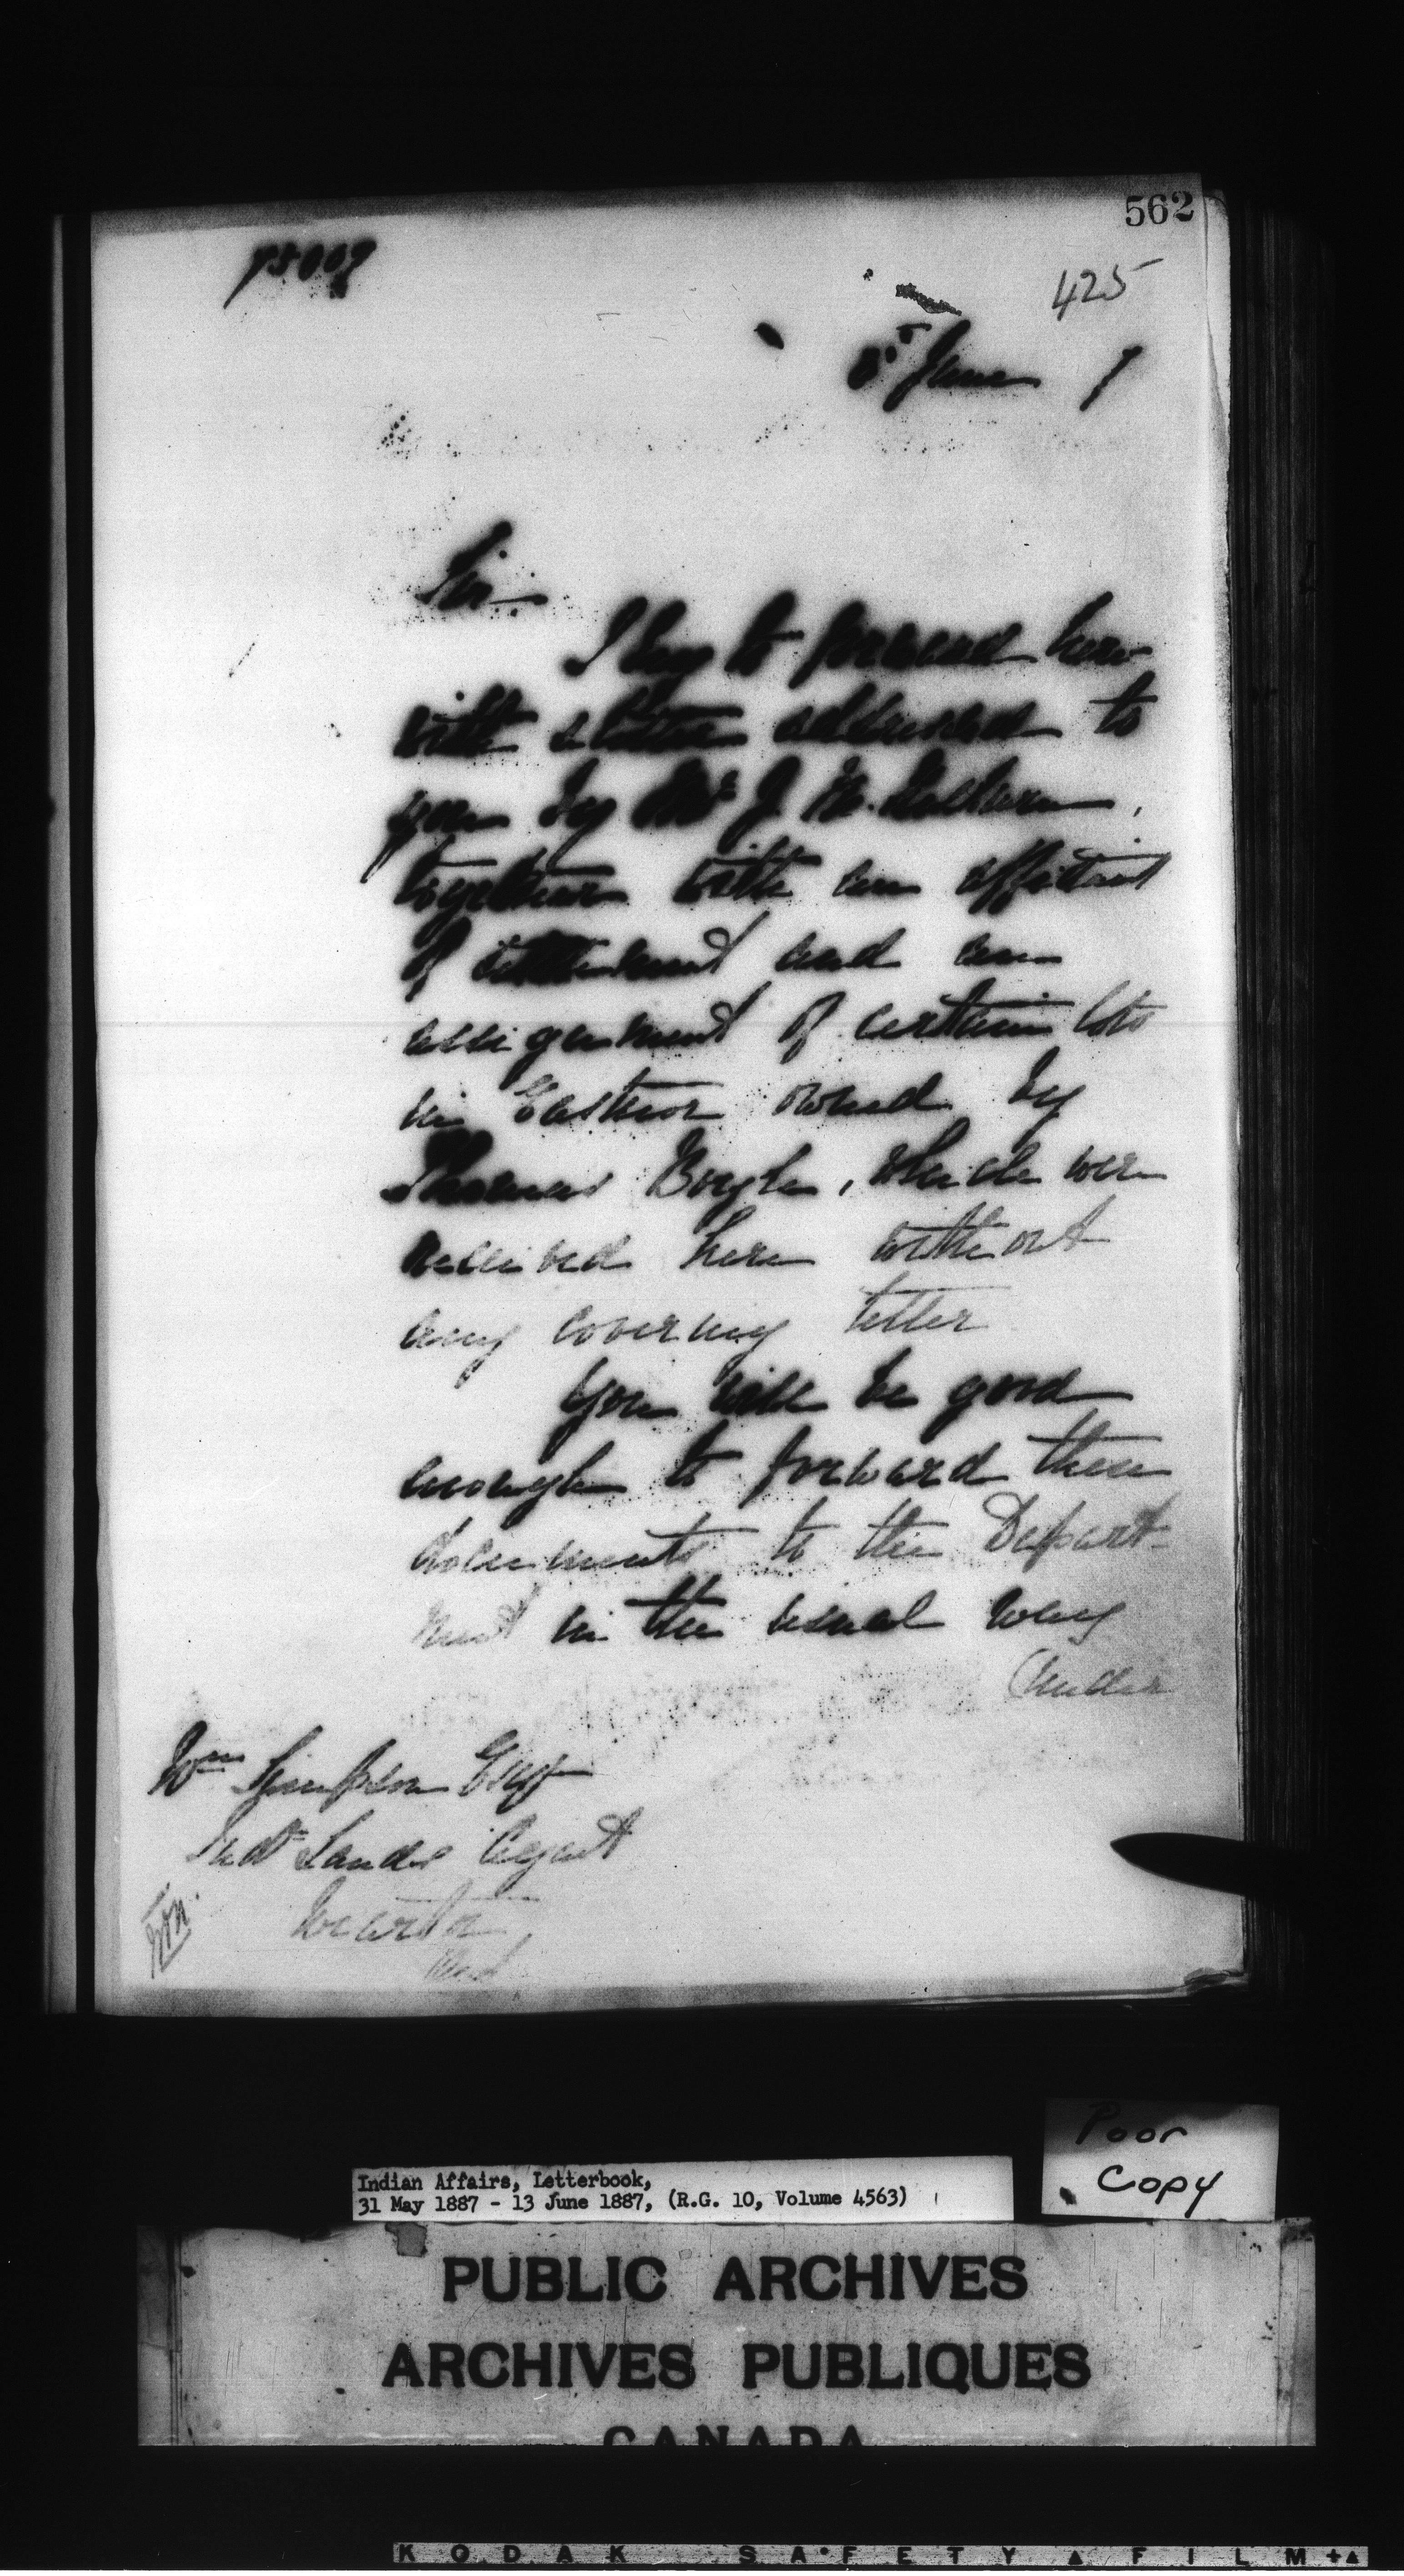 562
425
June 7
Sir.
I beg to forward here-
with a letter addressed to
you by Mr J. M.
together with an affidavit
of settlement and an
assignment of certain lots
in Eastnor owned by
Thomas Boyle, which were
received here without
any covering letter
You will be good
enough to forward these
documents to the Depart-
ment in the usual way
Under
Wm Simpson Esq
Indn Lands Agent
Wiarton
Ont
Poor
Copy
Indian Affairs, Letterbook,
31 May 1887 - 13 June 1887, (R.G. 10, Volume 4563)
PUBLIC ARCHIVES
ARCHIVES PUBLIQUES
CANADA
KODAK SAFETY FILM